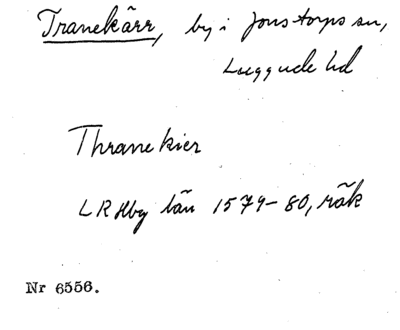 Tranekärr, by i Jonstorps sn,
Luggude hd
Thranekier
LR Hbg län 1579-80, räk
Nr 6556.